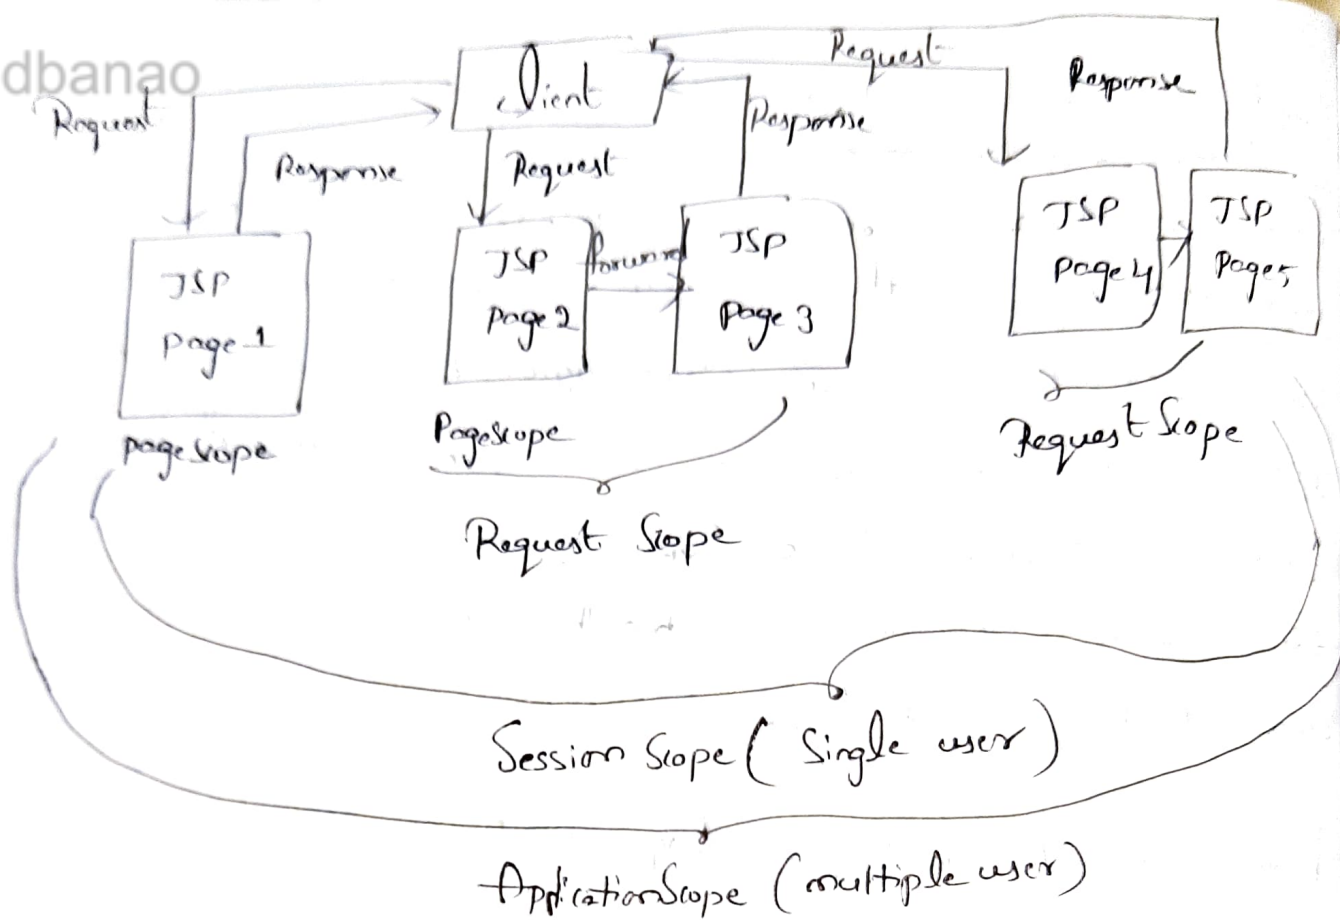 dbanao
Request
Response
Client
Request
Response
Request
Response
JSP
page 1
pagescope
JSP
page 2
forward
JSP
page 3
Pagescope
Request Scope
JSP
page 4
JSP
page 5
Request Scope
Session Scope ( Single user )
ApplicationScope (multiple user)